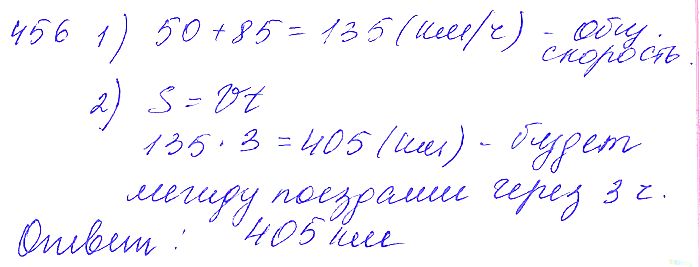 456 1) 50 + 85 = 135 (км/ч) - общ.
скорость.
2) S = Vt
135 · 3 = 405 (км) - будет
между поездами через 3 ч.
Ответ: 405 км